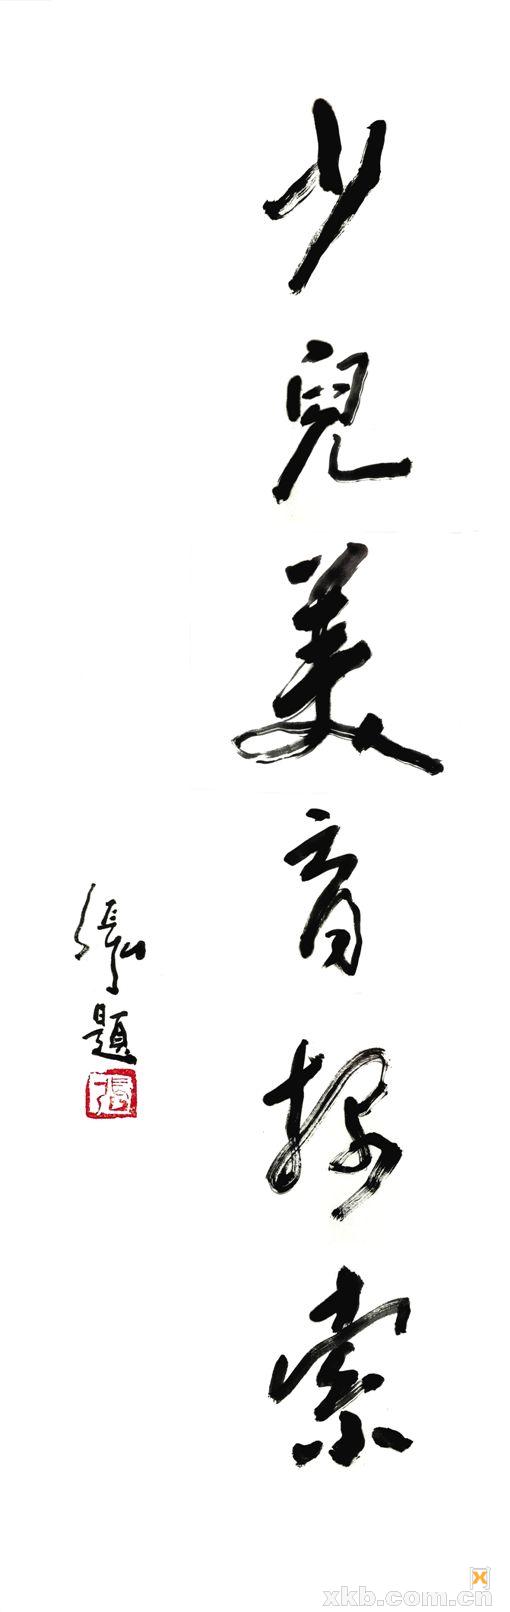 少兒美育探索
張
題
張
xkb.com.cn